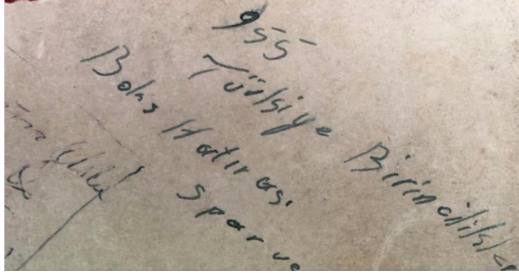 955
Türkiye Birincilikler
Boks Hatırası
Spor ve